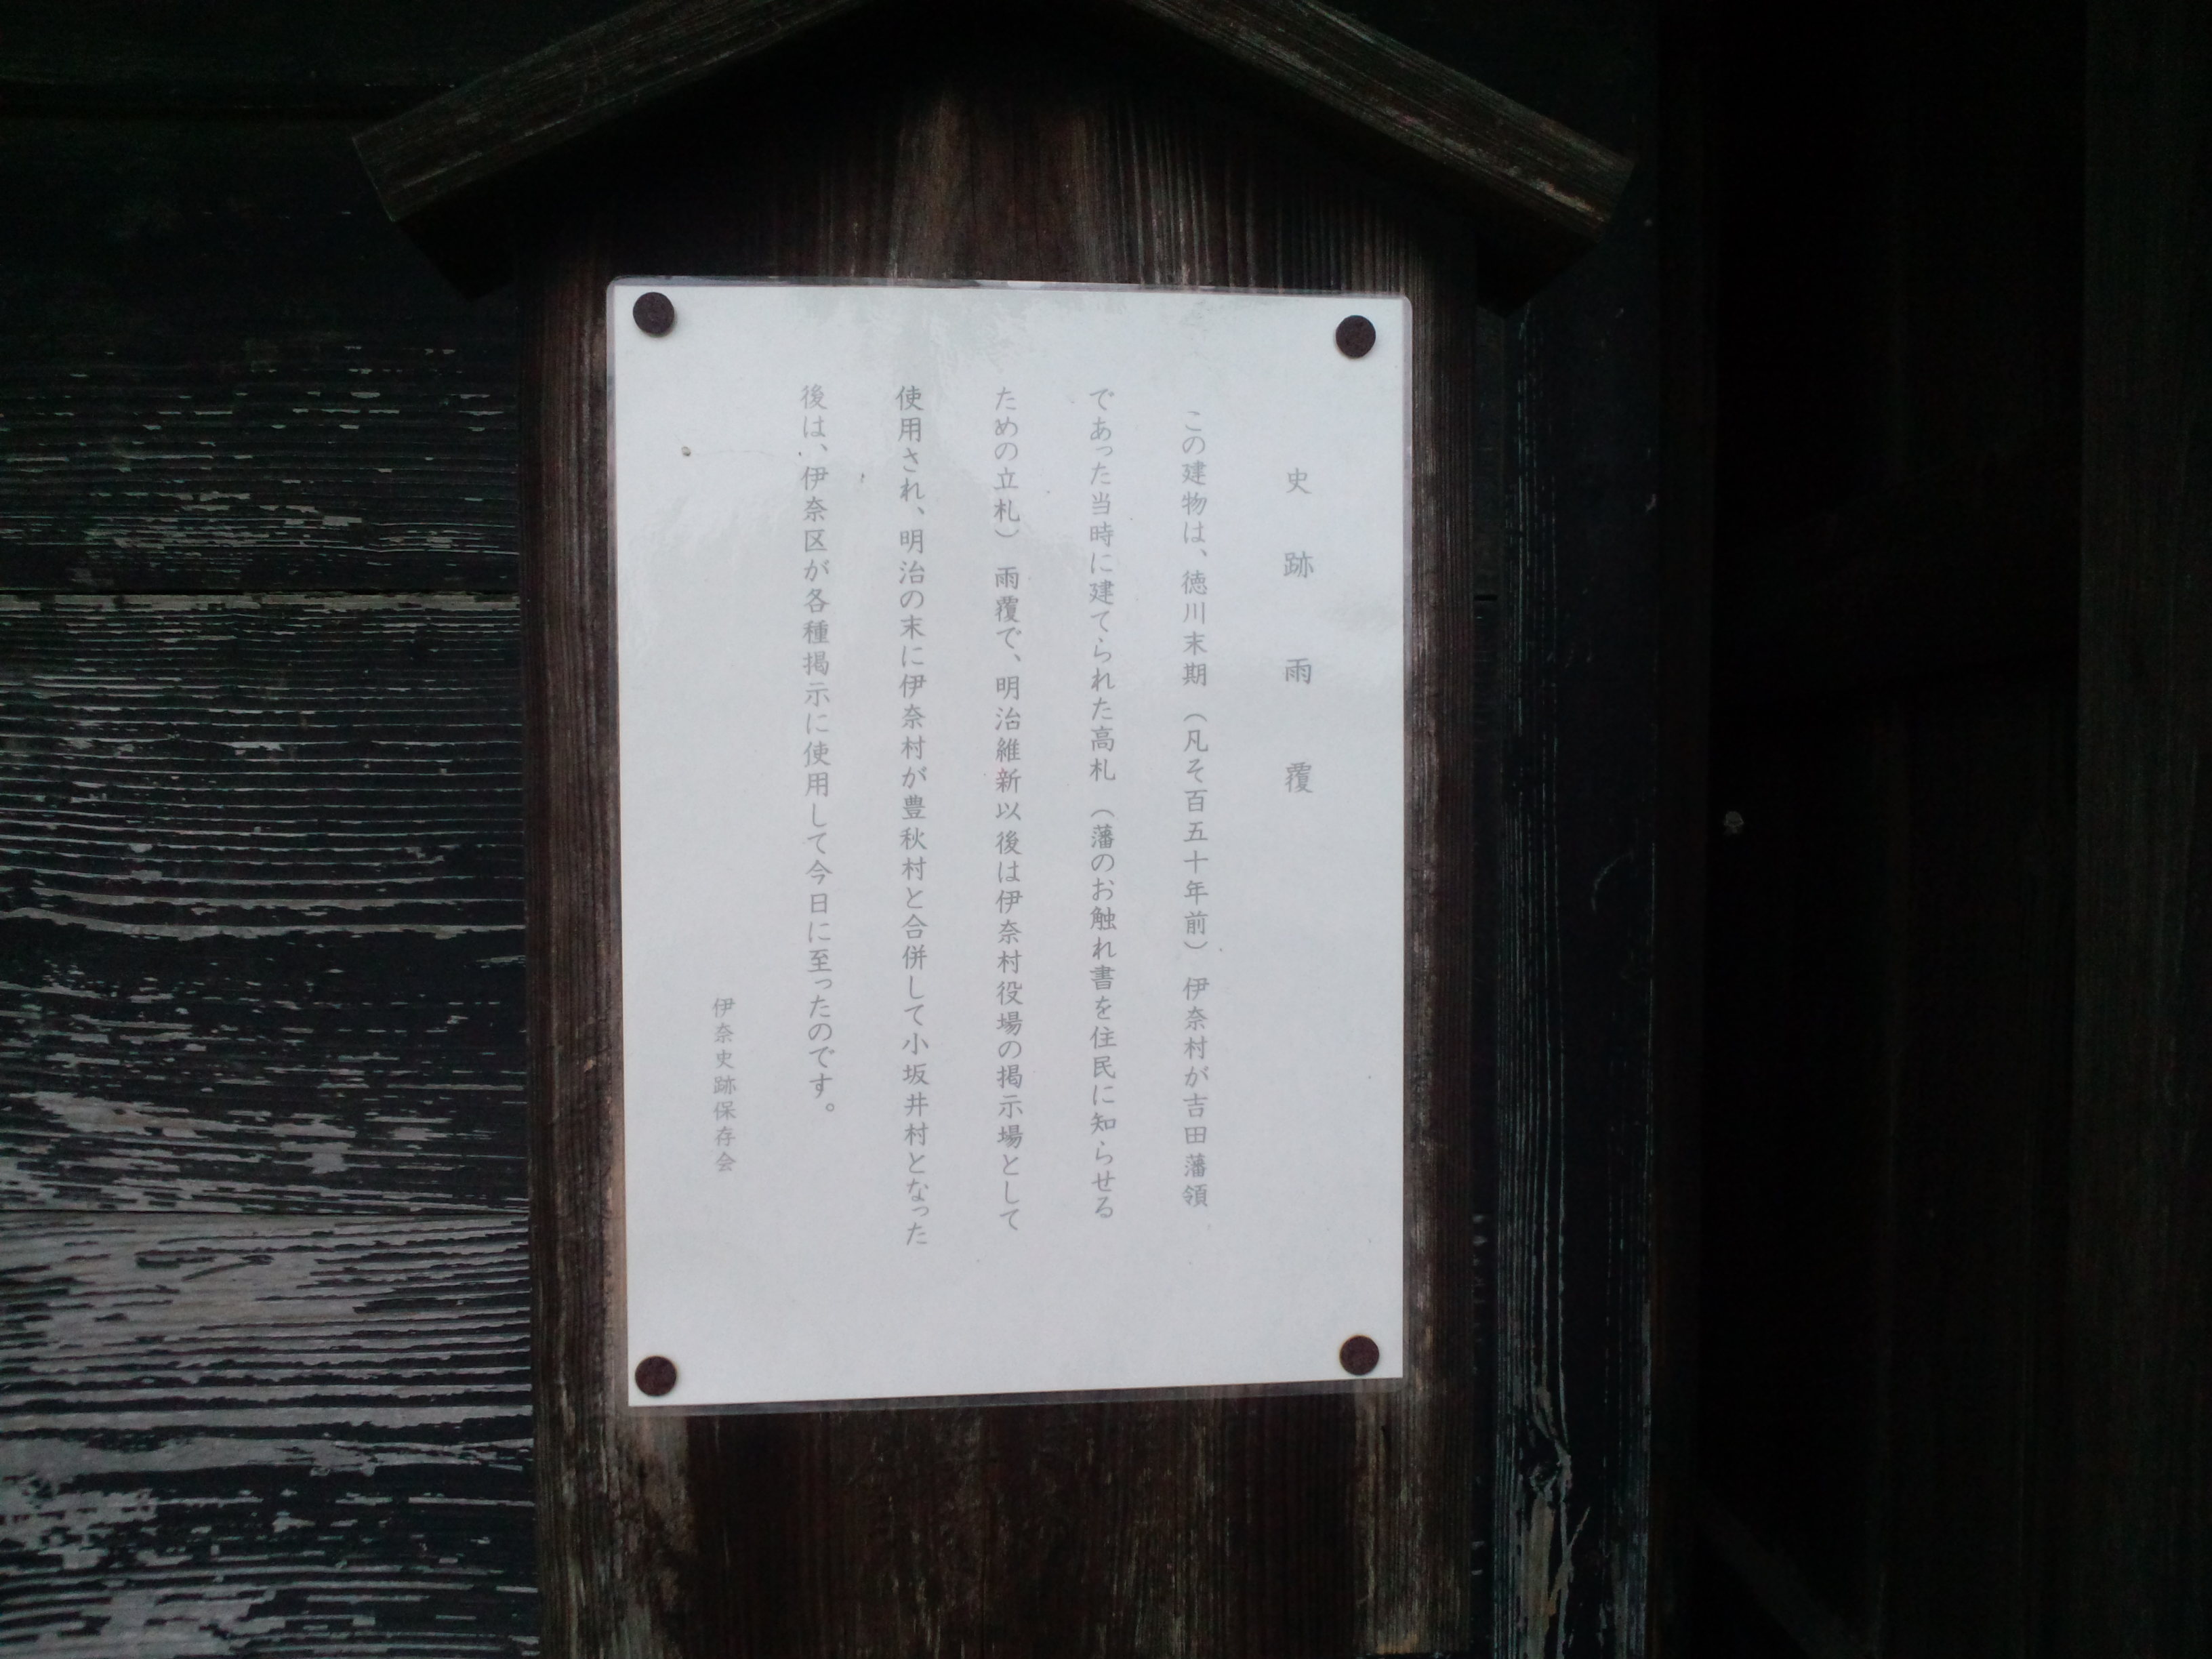 史跡雨覆
この建物は、徳川末期（凡そ百五十年前）伊奈村が吉田藩領
であった当時に建てられた高札（藩のお触れ書を住民に知らせる
ための立札）雨覆で、明治維新以後は伊奈村役場の掲示場として
使用され、明治の末に伊奈村が豊秋村と合併して小坂井村となった
後は、伊奈区が各種掲示に使用して今日に至ったのです。
伊奈史跡保存会